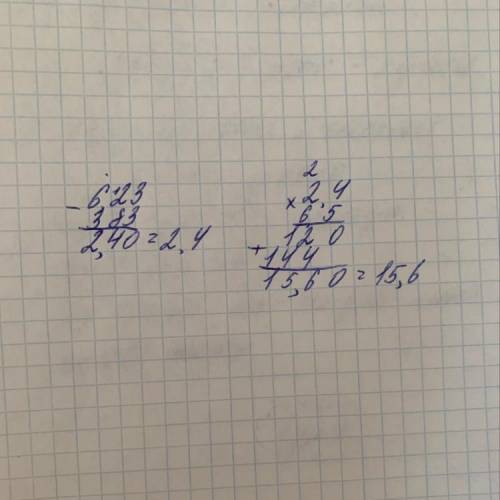 - 623
383
2,40 = 2,4
2
× 2,4
6 5
1 2 0
+ 1 4 4
15,60 = 15,6